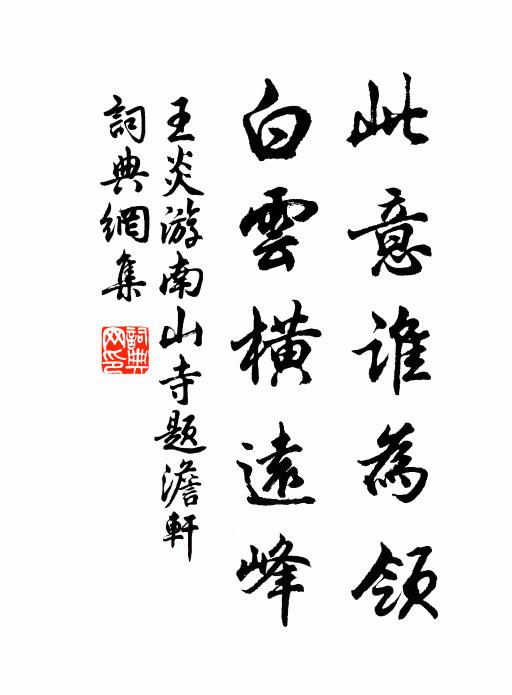 此意誰為領
白雲橫遠峰
王炎游南山寺题澹軒
詞典網集
詞典網印